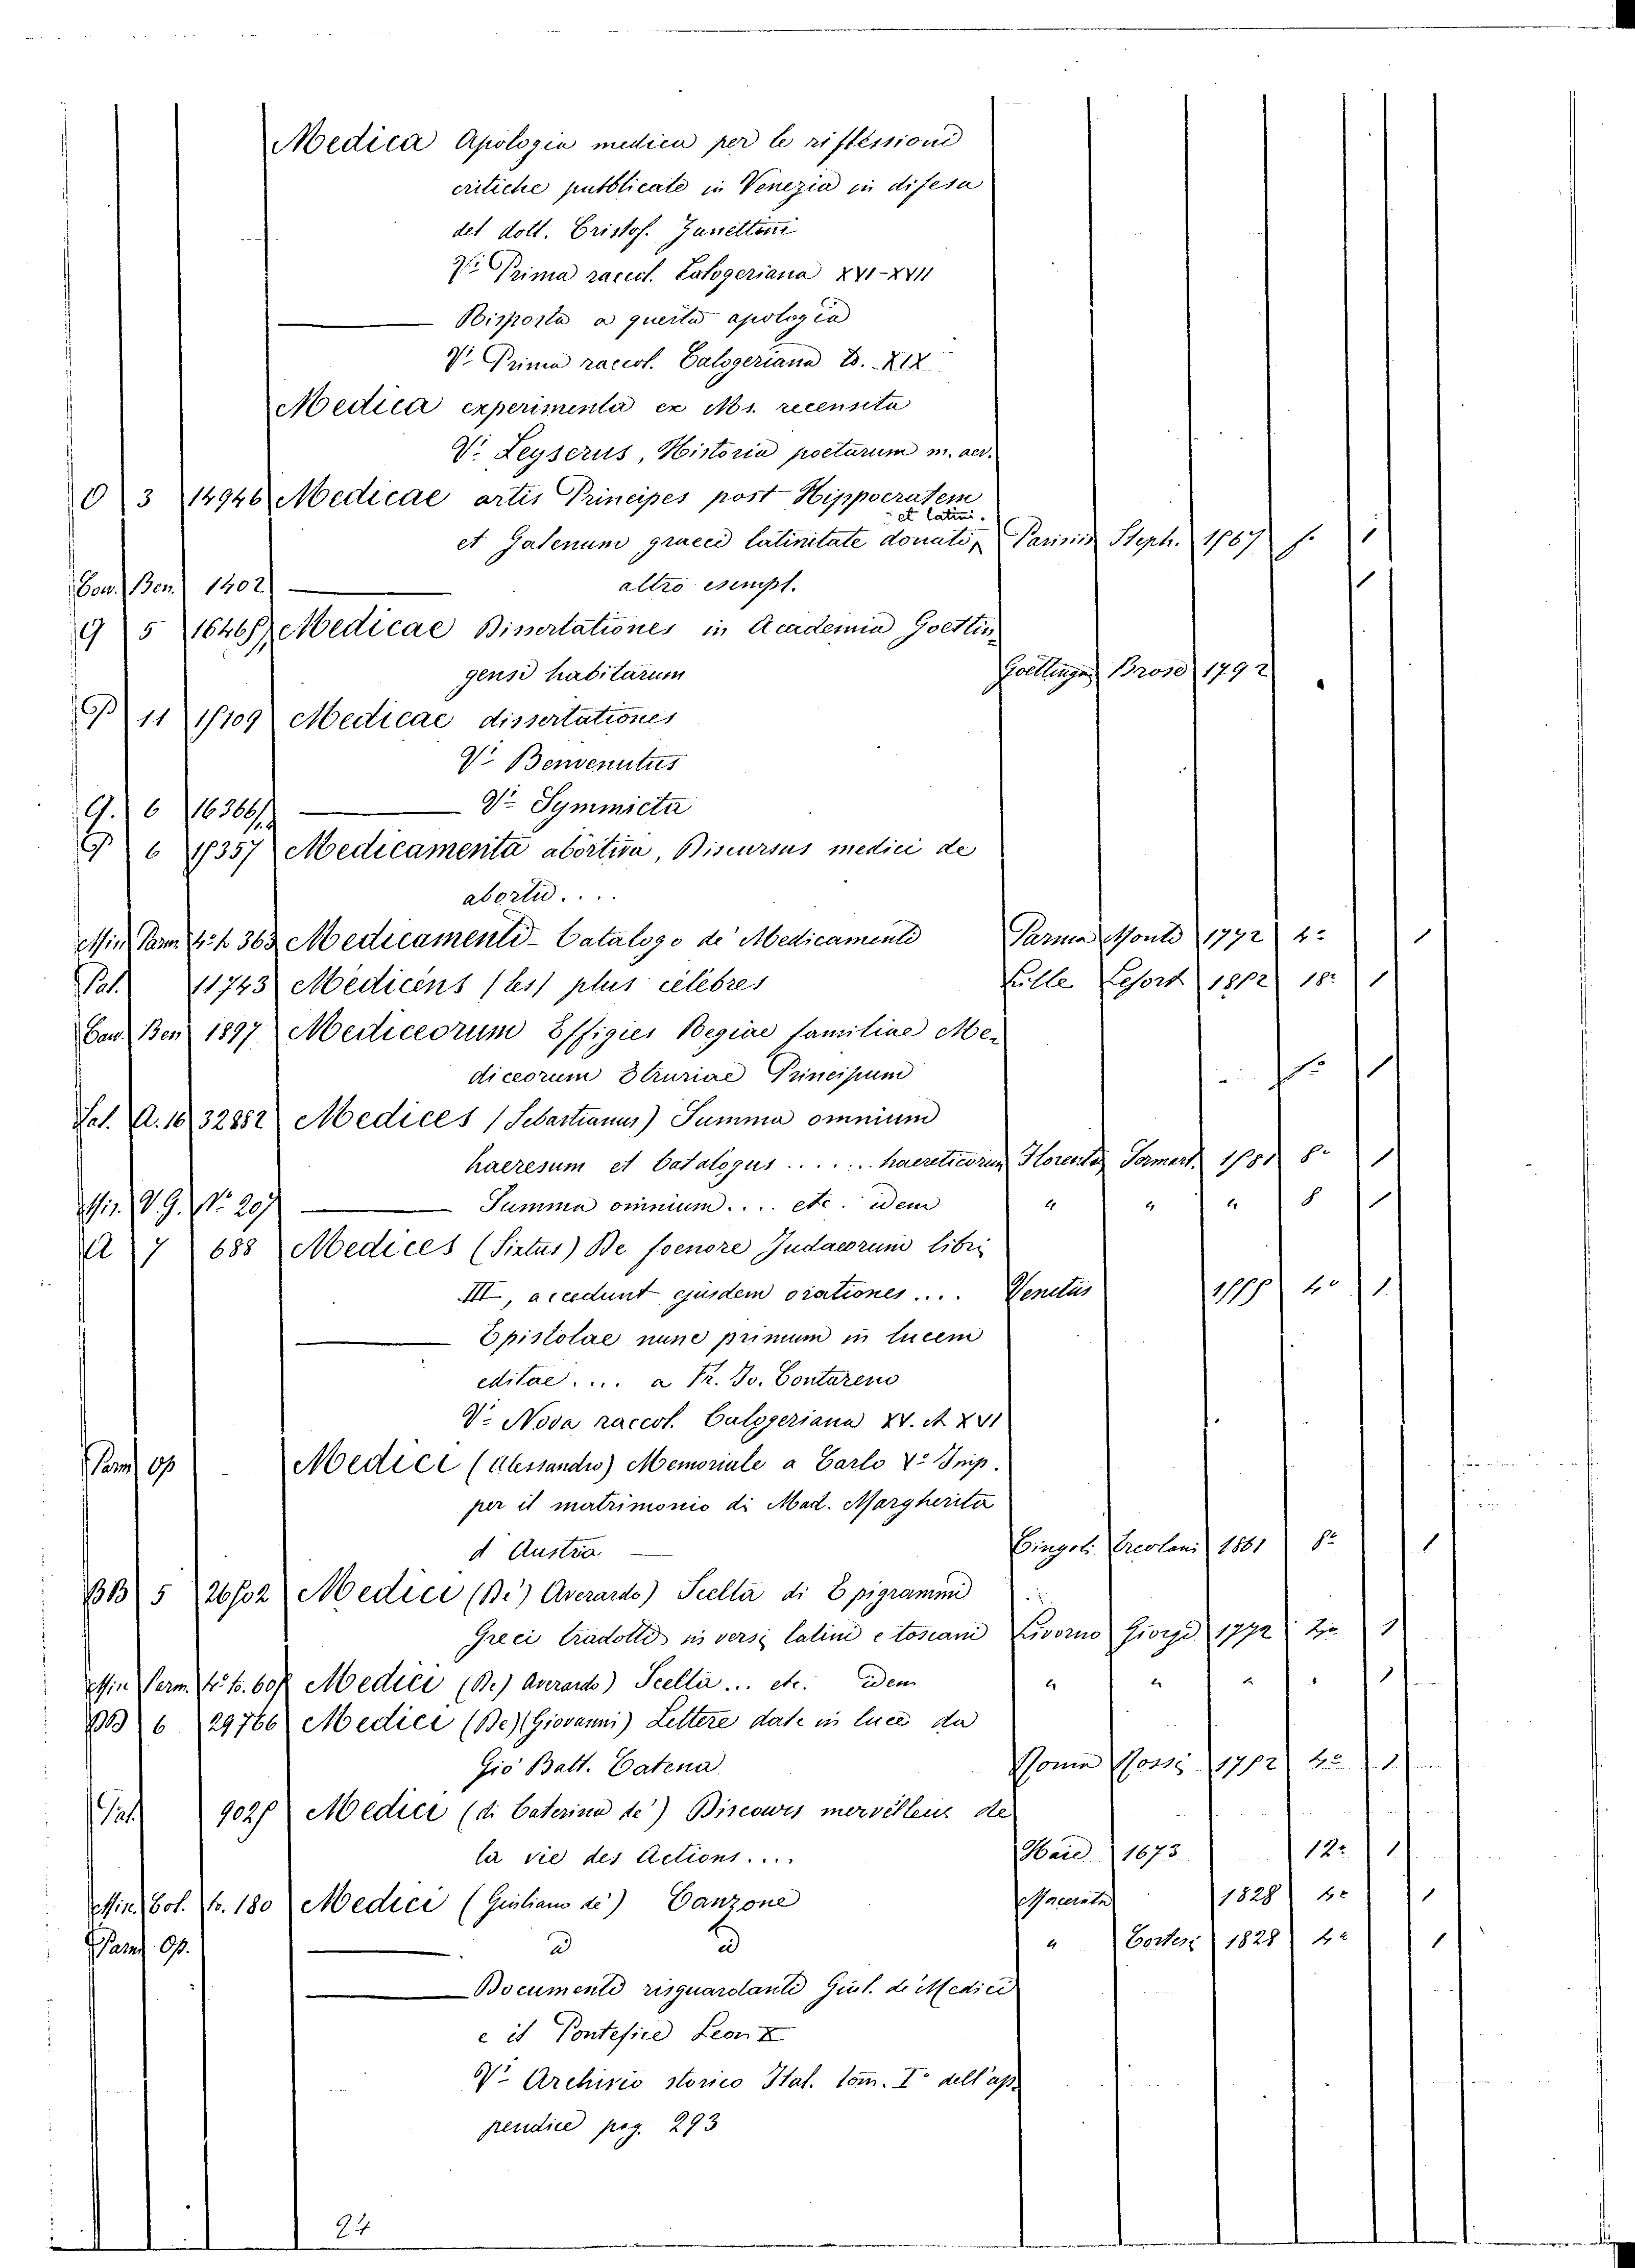 Medica Apologia medica per le riflessioni
critiche pubblicate in Venezia in difesa
del dott. Cristof. Zanettini
V. Prima raccol. Calogeriana XVI-XVII
Risposta a questa apologia
V. Prima raccol. Calogeriana T. XIX
Medica experimenta ex Ms. recensita
V. Leyserus, Historia poetarum m. aev.
O 3 14946 Medicae artis Principes post Hippocratem
et latini.
et Galenum graeci latinitate donati, Parisiis Steph. 1567 f. 1
Bon. Ben. 1402 altro esempl. 1
G 5 16465 Medicae Dissertationes in Academia Goettin
gensi habitarum Goettingen Brose 1792
P 11 15109 Medicae dissertationes
V. Benvenutus
G. 6 16366 V. Symmicta
P 6 15357 Medicamenta abortiva, Discursus medici de
abortu....
Min. Parm. 4. t. 363 Medicamenti - Catalogo de' Medicamenti Parma Monti 1792 4. 1
Pal. 11743 Médicins (les) plus célèbres Lille Lefort 1852 18. 1
Bon. Ben. 1897 Mediceorum Effigies Regiae familiae Me-
diceorum Etruriae Principum f. 1
Pal. A. 16 32852 Medices (Sebastianus) Summa omnium
haeresum et Catalogus ...... haereticorum Florentiae Sermart. 1581 8. 1
Min. V. G. N. 207 Summa omnium.... etc. idem " " " 8 1
A 7 688 Medices (Sixtus) De foenore Judaeorum libri
III, accedunt ejusdem orationes.... Venetiis 1555 4. 1
Epistolae nunc primum in lucem
editae.... a Fr. Jo. Contareno
V. Nova raccol. Calogeriana XV. et XVI
Parm. Op Medici (Alessandro) Memoriale a Carlo V. Imp.
per il matrimonio di Mad. Margherita
d'Austria Cingoli Ercolani 1861 8. 1
BB 5 26502 Medici (De') Averardo) Scelta di Epigrammi
Greci tradotti in versi latini e toscani Livorno Giorgi 1772 4. 1
Min. Parm. 4. t. 605 Medici (De') Averardo) Scelta... etc. idem " " " " 1
BB 6 29766 Medici (De') (Giovanni) Lettere date in luce da
Gio Batt. Catena Roma Rossi 1752 4. 1
Pal. 9025 Medici (di Caterina de') Discours mervelleus de
la vie des Actions.... Haie 1673 12. 1
Min. Bol. t. 180 Medici (Giuliano de') Canzone Macerata 1828 4. 1
Parm. Op. id id " Cortesi 1828 4. 1
Documenti risguardanti Giul. de Medici
e il Pontefice Leon X
V. Archivio storico Ital. tom. I. dell'ap-
pendice pag. 293
24